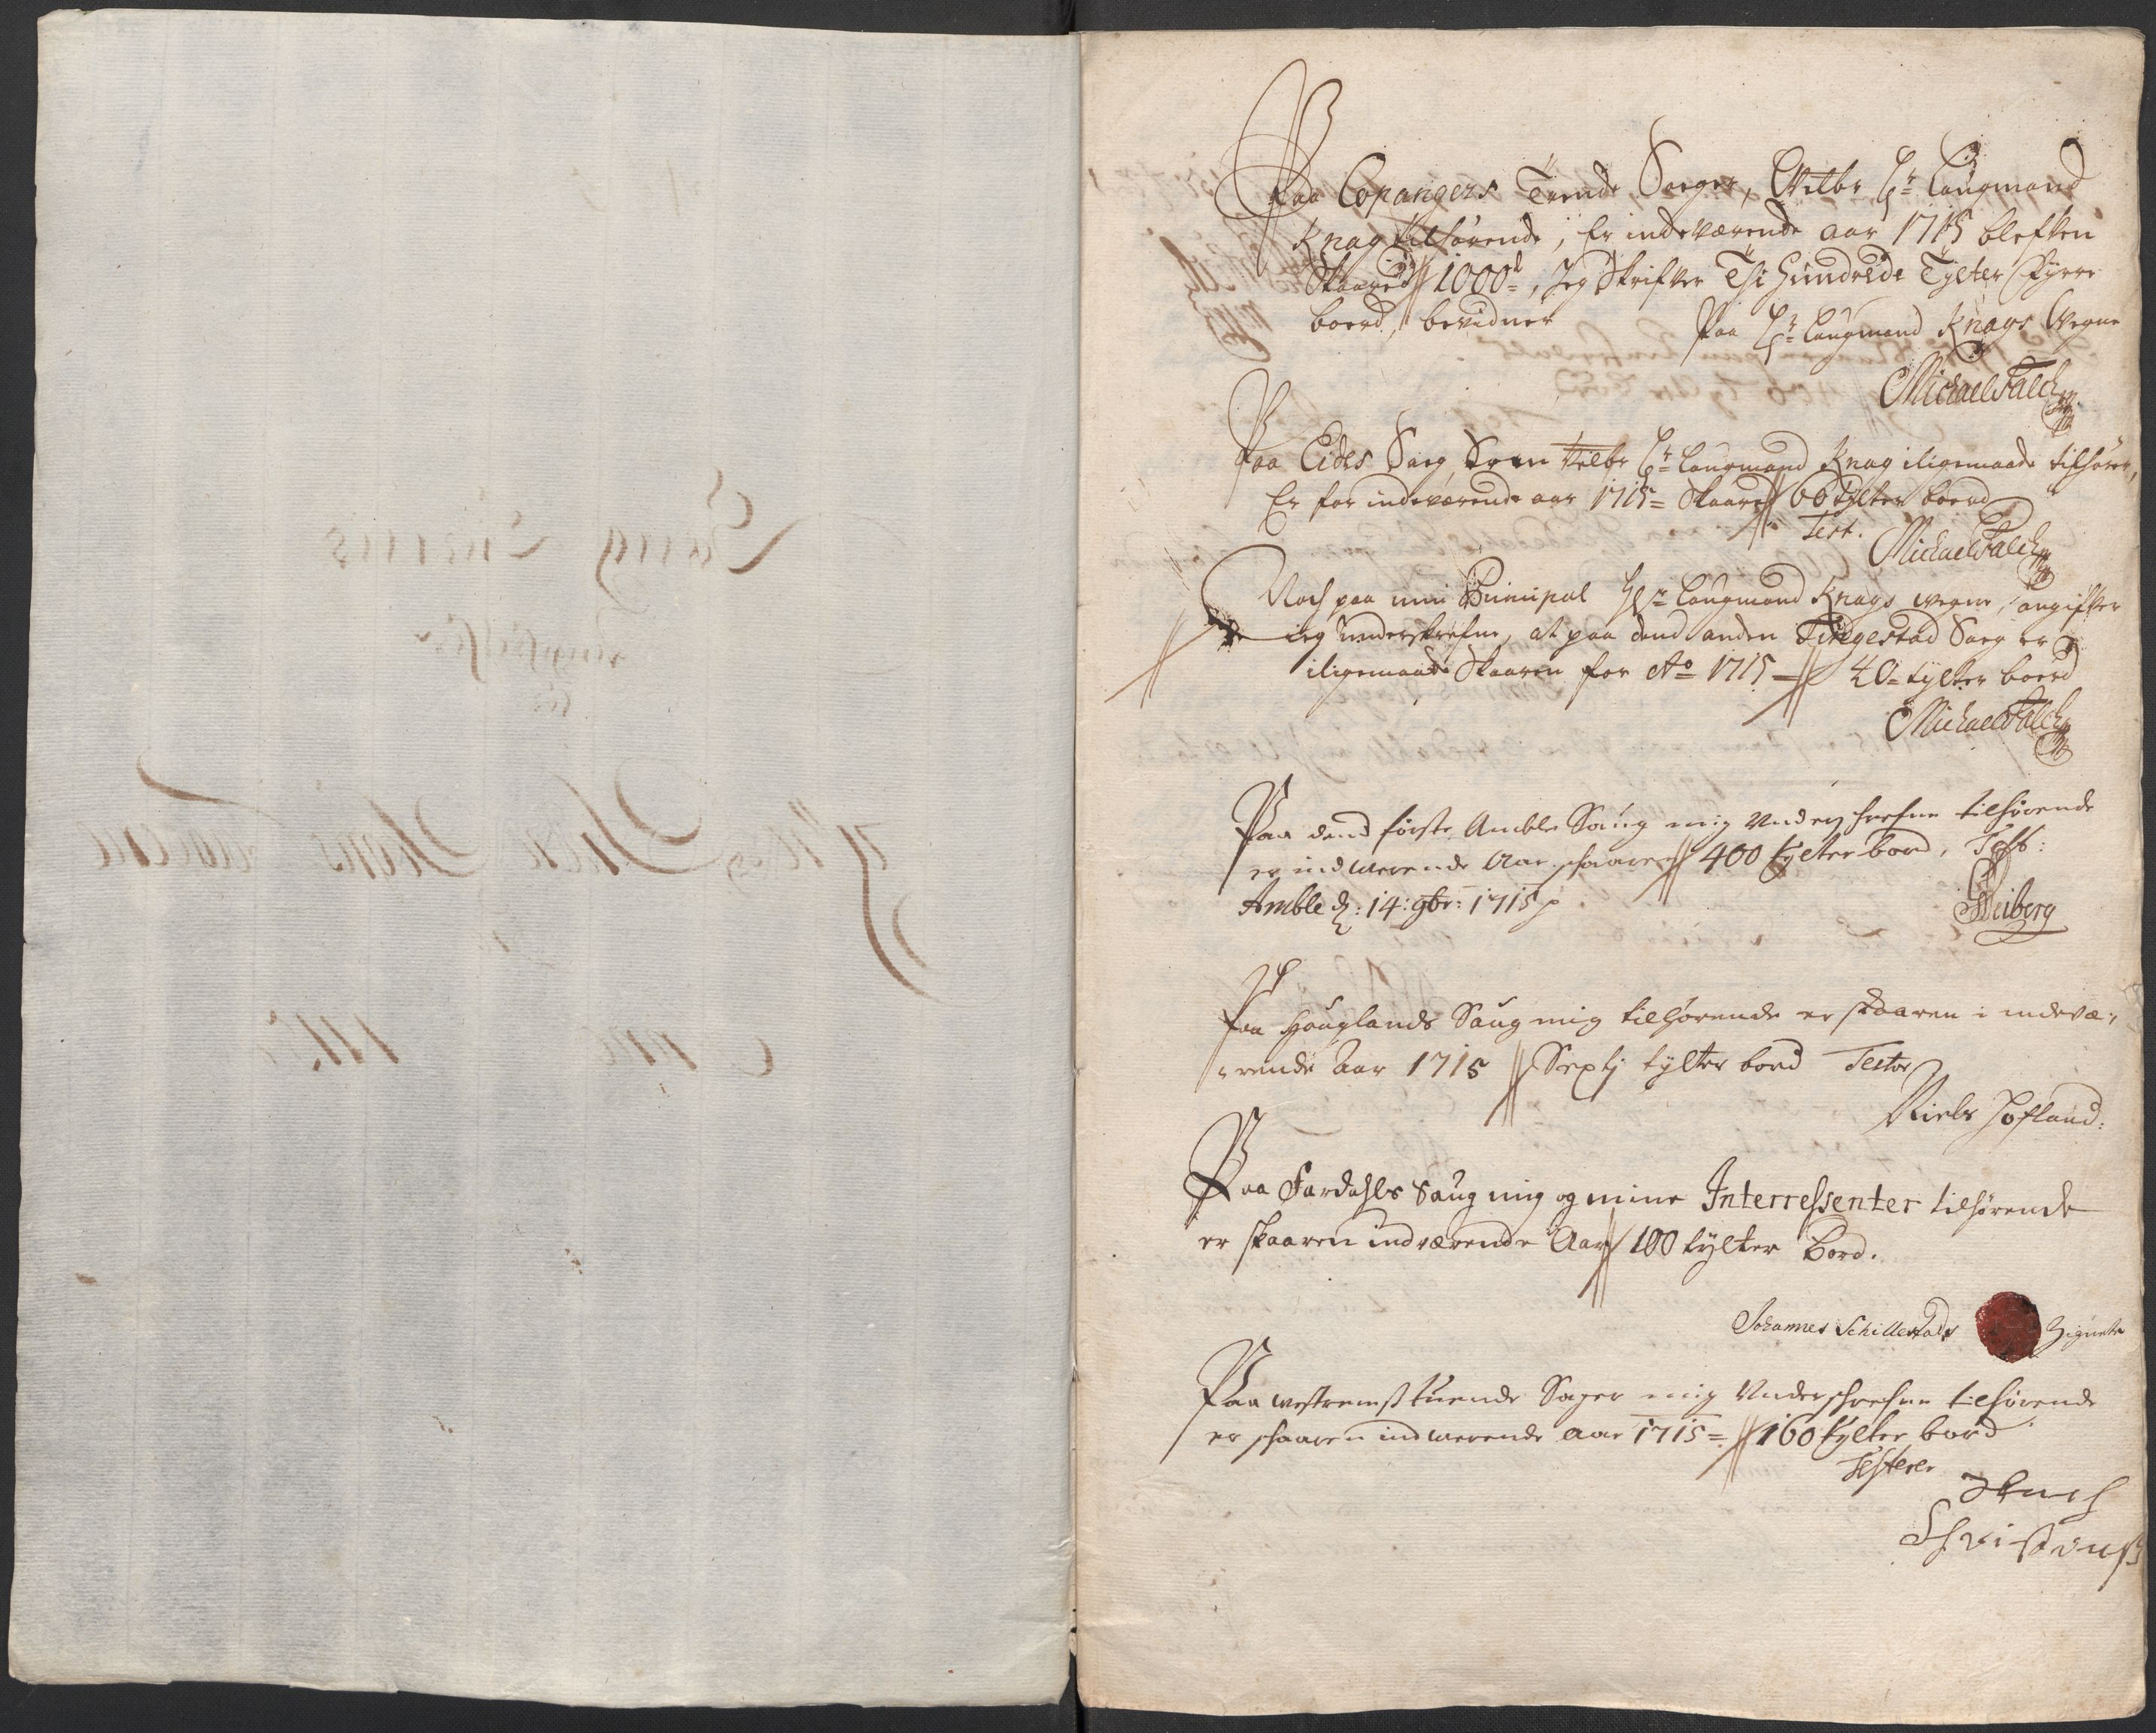 Paa Copangers Trende Sauger, Welbr Hr Laugmand
Knag tilhørende, Er indeværende aar 1715 blefven
Skaared 1000d, Jeg Skrifver Thi Hundrede Tylter Fyrre
boerd, bevidner Paa Hr Laugmand Knags Vegne
Michael Falch
Paa Eides Saug Som Velbr Hr Laugmand Knag iligemaade tilhører,
Er for indeværende aar 1715 = Skaared 60 tylter boerd
Test. Michael Falch
Noch paa min Principal Hr Laugmand Knags vegne, angifver
ieg underskrefne, at paa dend anden Saug er
iligemaade Skaaren for Ao 1715 = 40 = tylter boerd
Michael Falch
Paa dend første Amble Saug mig Underschrefne tilhørende
er indwerende Aar schaaren 400 tylter bord, Test:
Amble d: 14: 9br: 1715
Heiberg
Paa Houglands Saug mig tilhørende er skaaren i indevæ-
rende Aar 1715 Sexti tylter bord Testor
Niels Hofland:
Paa Fardahls Saug mig og mine Interressenter tilhørende
er skaaren indværende Aar 100 tylter Bord.
Johannes Schillestads Zignete
Paa westrems tuende Sager mig Underschrefne tilhørende
er schaaren indwerende Aar 1715 = 160 tylter bord
Testerer